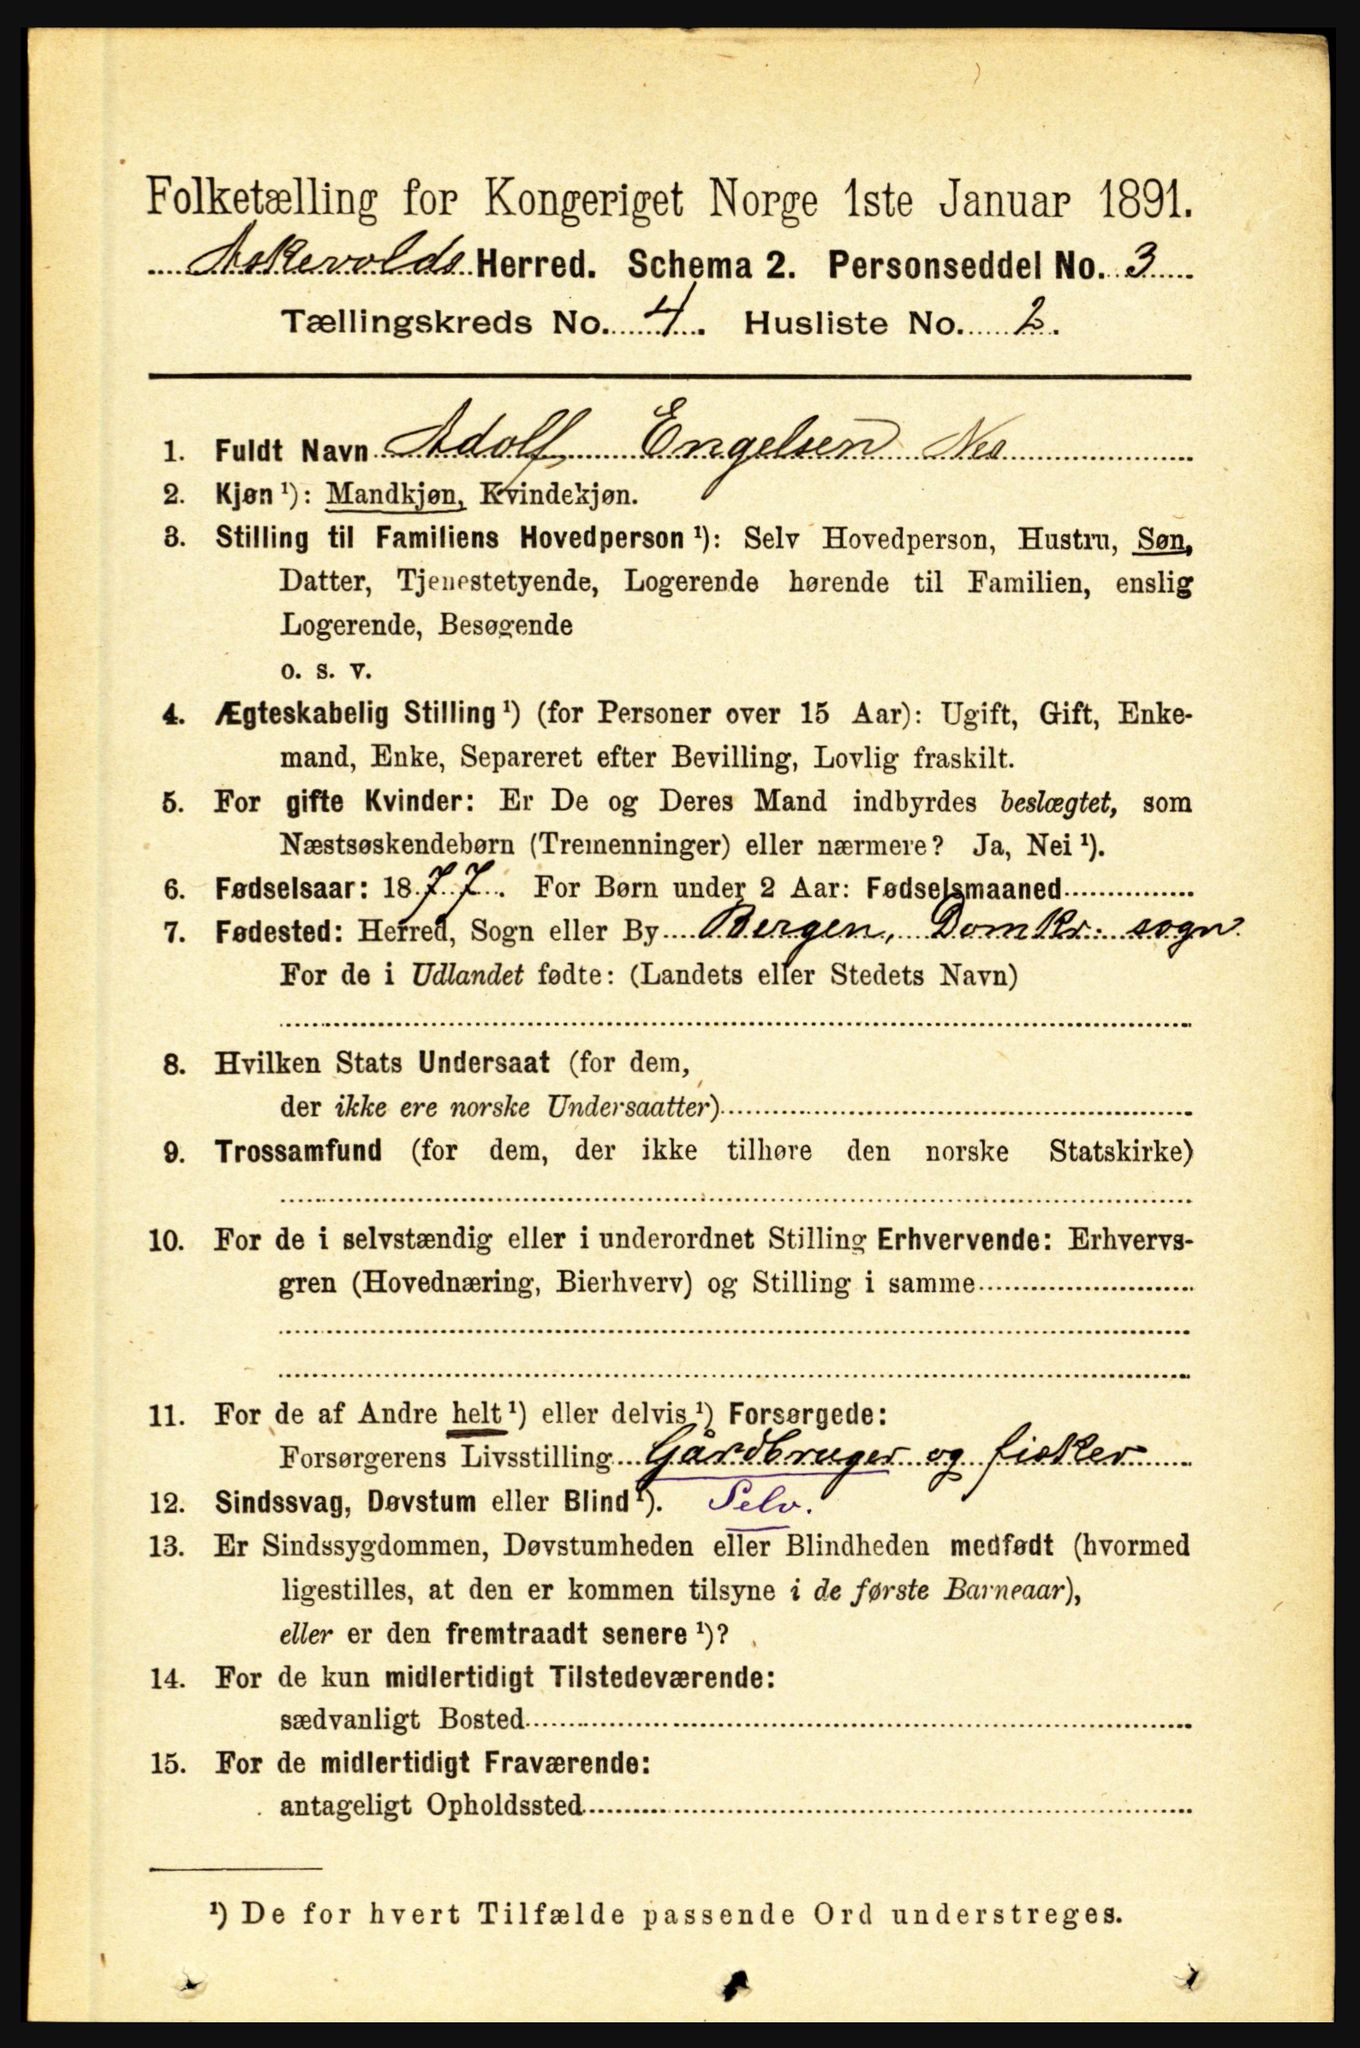 Folketælling for Kongeriget Norge 1ste Januar 1891.
Askevolds Herred. Schema 2. Personseddel No. 3
Tællingskreds No. 4. Husliste No. 2.
1. Fuldt Navn Adolf Engelsen Nes
2. Kjøn ¹): Mandkjøn, Kvindekjøn.
3. Stilling til Familiens Hovedperson ¹): Selv Hovedperson, Hustru, Søn,
Datter, Tjenestetyende, Logerende hørende til Familien, enslig
Logerende, Besøgende
o. s. v.
4. Ægteskabelig Stilling ¹) (for Personer over 15 Aar): Ugift, Gift, Enke-
mand, Enke, Separeret efter Bevilling, Lovlig fraskilt.
5. For gifte Kvinder: Er De og Deres Mand indbyrdes beslægtet, som
Næstsøskendebørn (Tremenninger) eller nærmere? Ja, Nei ¹).
6. Fødselsaar: 1877. For Børn under 2 Aar: Fødselsmaaned
7. Fødested: Herred, Sogn eller By Bergen, Domkr. sogn
For de i Udlandet fødte: (Landets eller Stedets Navn)
8. Hvilken Stats Undersaat (for dem,
der ikke ere norske Undersaatter)
9. Trossamfund (for dem, der ikke tilhøre den norske Statskirke)
10. For de i selvstændig eller i underordnet Stilling Erhvervende: Erhvervs-
gren (Hovednæring, Bierhverv) og Stilling i samme
11. For de af Andre helt ¹) eller delvis ¹) Forsørgede:
Forsørgerens Livsstilling Gårdbruger og fisker
12. Sindssvag, Døvstum eller Blind ¹). Selv.
13. Er Sindssygdommen, Døvstumheden eller Blindheden medfødt (hvormed
ligestilles, at den er kommen tilsyne i de første Barneaar),
eller er den fremtraadt senere ¹)?
14. For de kun midlertidigt Tilstedeværende:
sædvanligt Bosted
15. For de midlertidigt Fraværende:
antageligt Opholdssted
¹) De for hvert Tilfælde passende Ord understreges.